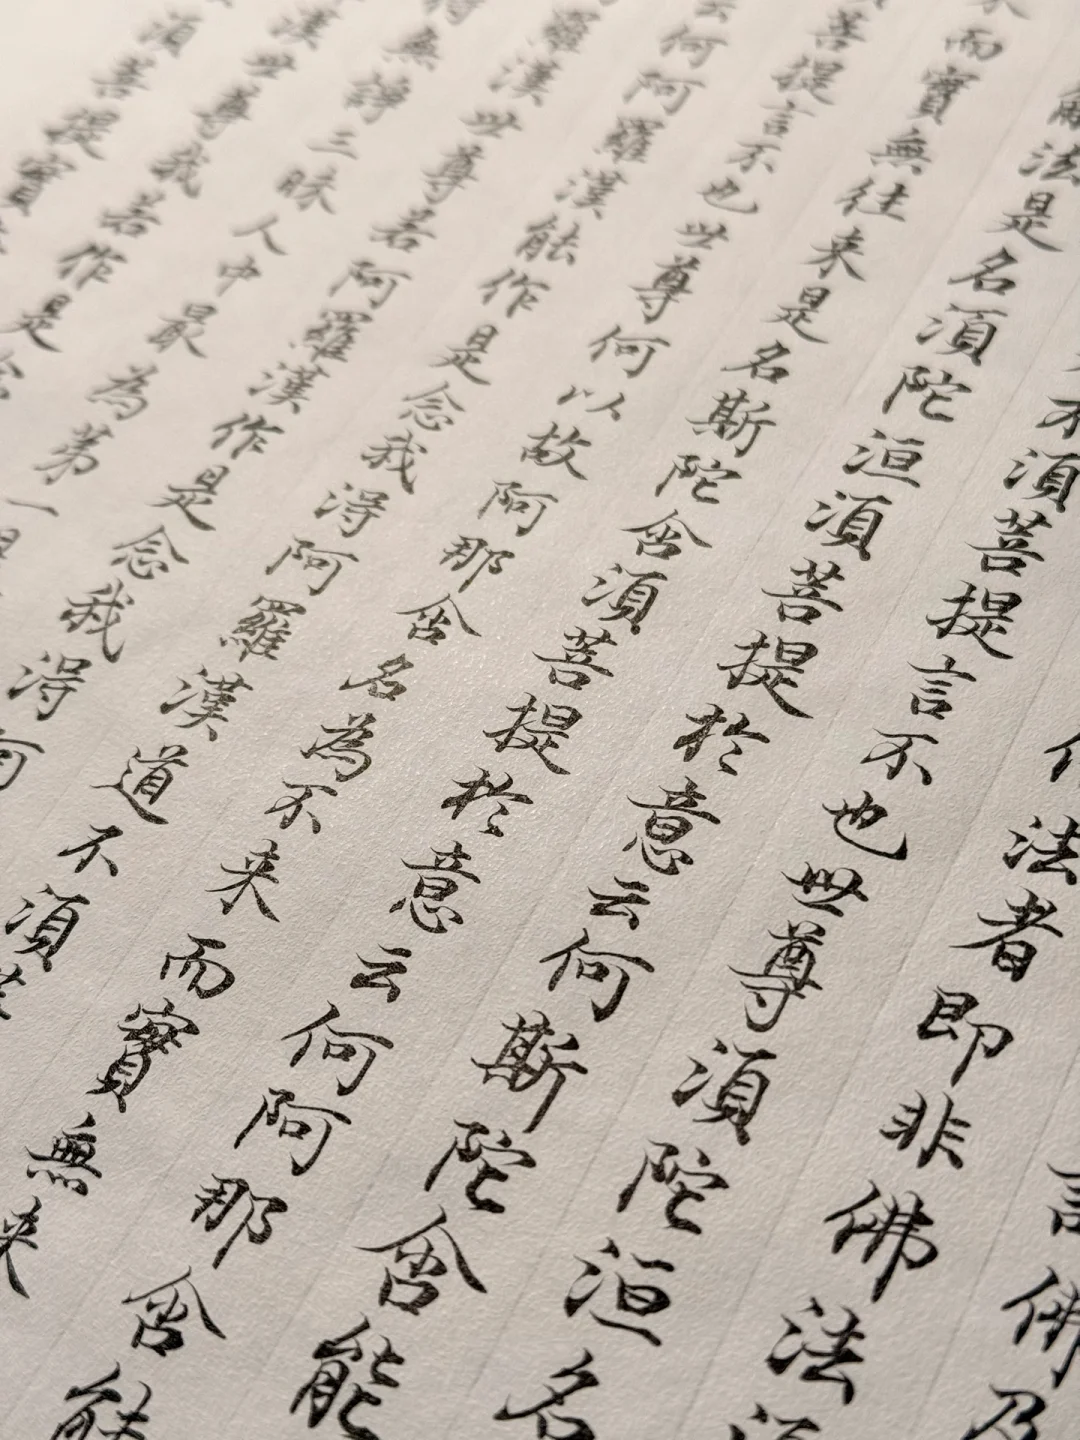 言佛乃
法者即非佛法須
不須菩提言不也世尊須陀洹名
法是名須陀洹須菩提於意云何斯陀含能
来而實無往来是名斯陀含須菩提於意云何阿那含能
菩提言不也世尊何以故阿那含名為不来而實無来
云何阿羅漢能作是念我得阿羅漢道不須菩
羅漢世尊若阿羅漢作是念我得阿
得無諍三昧人中最為第一是
漢世尊我若作是念
須菩提實